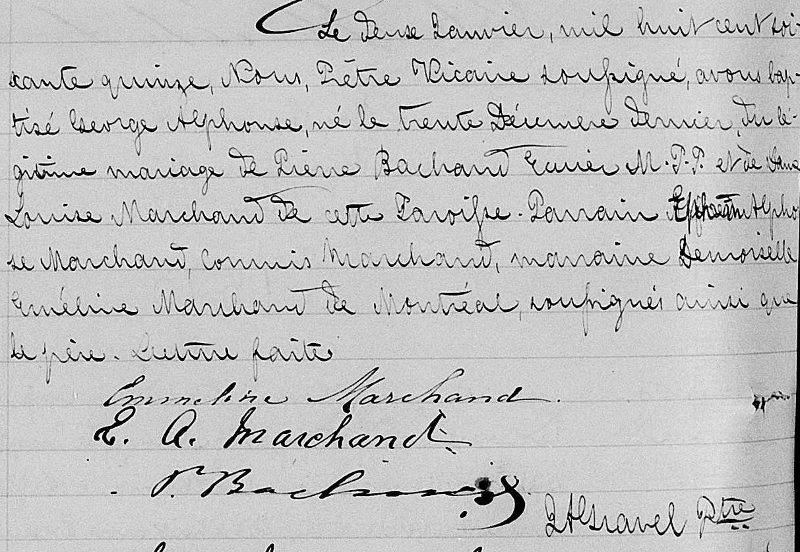 Le deuse Janvier, mil huit cent soi-
xante quinze, Nous, Prêtre Vicaire soussigné, avons bap-
tisé George Alphonse, né le trente Décembre dernier, du lé-
gitime mariage de Pierre Bachand Ecuier M.P.P. et de Dame
Louise Marchand de cette Paroisse. Parrain Ephrem Alphon
se Marchand, Commis Marchand, marraine Demoiselle
Eméline Marchand de Montréal, soussignés ainsi que
le père. Lecture faite
Emmeline Marchand
E. A. Marchand
P. Bachand
Gravel Ptre